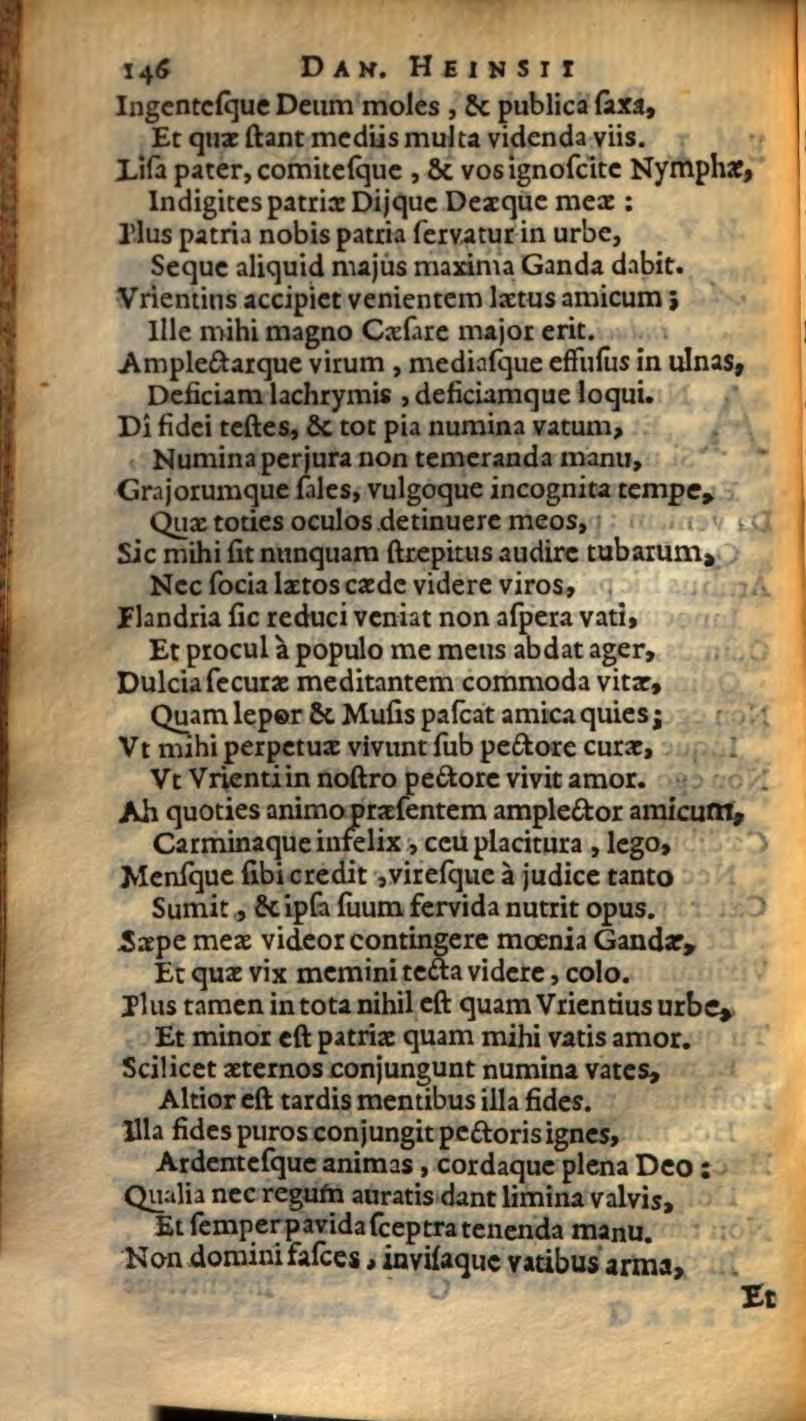 146 DAN. HEINSII
Ingenteſque Deum moles , & publica ſaxa,
Et quæ ſtant mediis multa videnda viis.
Liſa pater, comiteſque , & vos ignoſcite Nymphæ,
Indigites patriæ Dijque Deæque meæ :
Plus patria nobis patria ſervatur in urbe,
Seque aliquid majus maxima Ganda dabit.
Vrientius accipiet venientem lætus amicum ;
Ille mihi magno Cæſare major erit.
Amplectarque virum , mediaſque effuſus in ulnas,
Deficiam lachrymis , deficiamque loqui.
Dî fidei teſtes, & tot pia numina vatum,
Numina perjura non temeranda manu,
Grajorumque ſales, vulgoque incognita tempe,
Quæ toties oculos detinuere meos,
Sic mihi ſit nunquam ſtrepitus audire tubarum,
Nec ſocia lætos cæde videre viros,
Flandria ſic reduci veniat non aſpera vati,
Et procul à populo me meus abdat ager,
Dulcia ſecuræ meditantem commoda vitæ,
Quam lepor & Muſis paſcat amica quies ;
Vt mihi perpetuæ vivunt ſub pectore curæ,
Vt Vrienti in noſtro pectore vivit amor.
Ah quoties animo præſentem amplector amicum,
Carminaque infelix , ceu placitura , lego,
Menſque ſibi credit , vireſque à judice tanto
Sumit , & ipſa ſuum fervida nutrit opus.
Sæpe meæ videor contingere mœnia Gandæ,
Et quæ vix memini tecta videre , colo.
Plus tamen in tota nihil eſt quam Vrientius urbe,
Et minor eſt patriæ quam mihi vatis amor.
Scilicet æternos conjungunt numina vates,
Altior eſt tardis mentibus illa fides.
Illa fides puros conjungit pectoris ignes,
Ardenteſque animas , cordaque plena Deo :
Qualia nec regum auratis dant limina valvis,
Et ſemper pavida ſceptra tenenda manu.
Non domini faſces , inviſaque vatibus arma,
Et